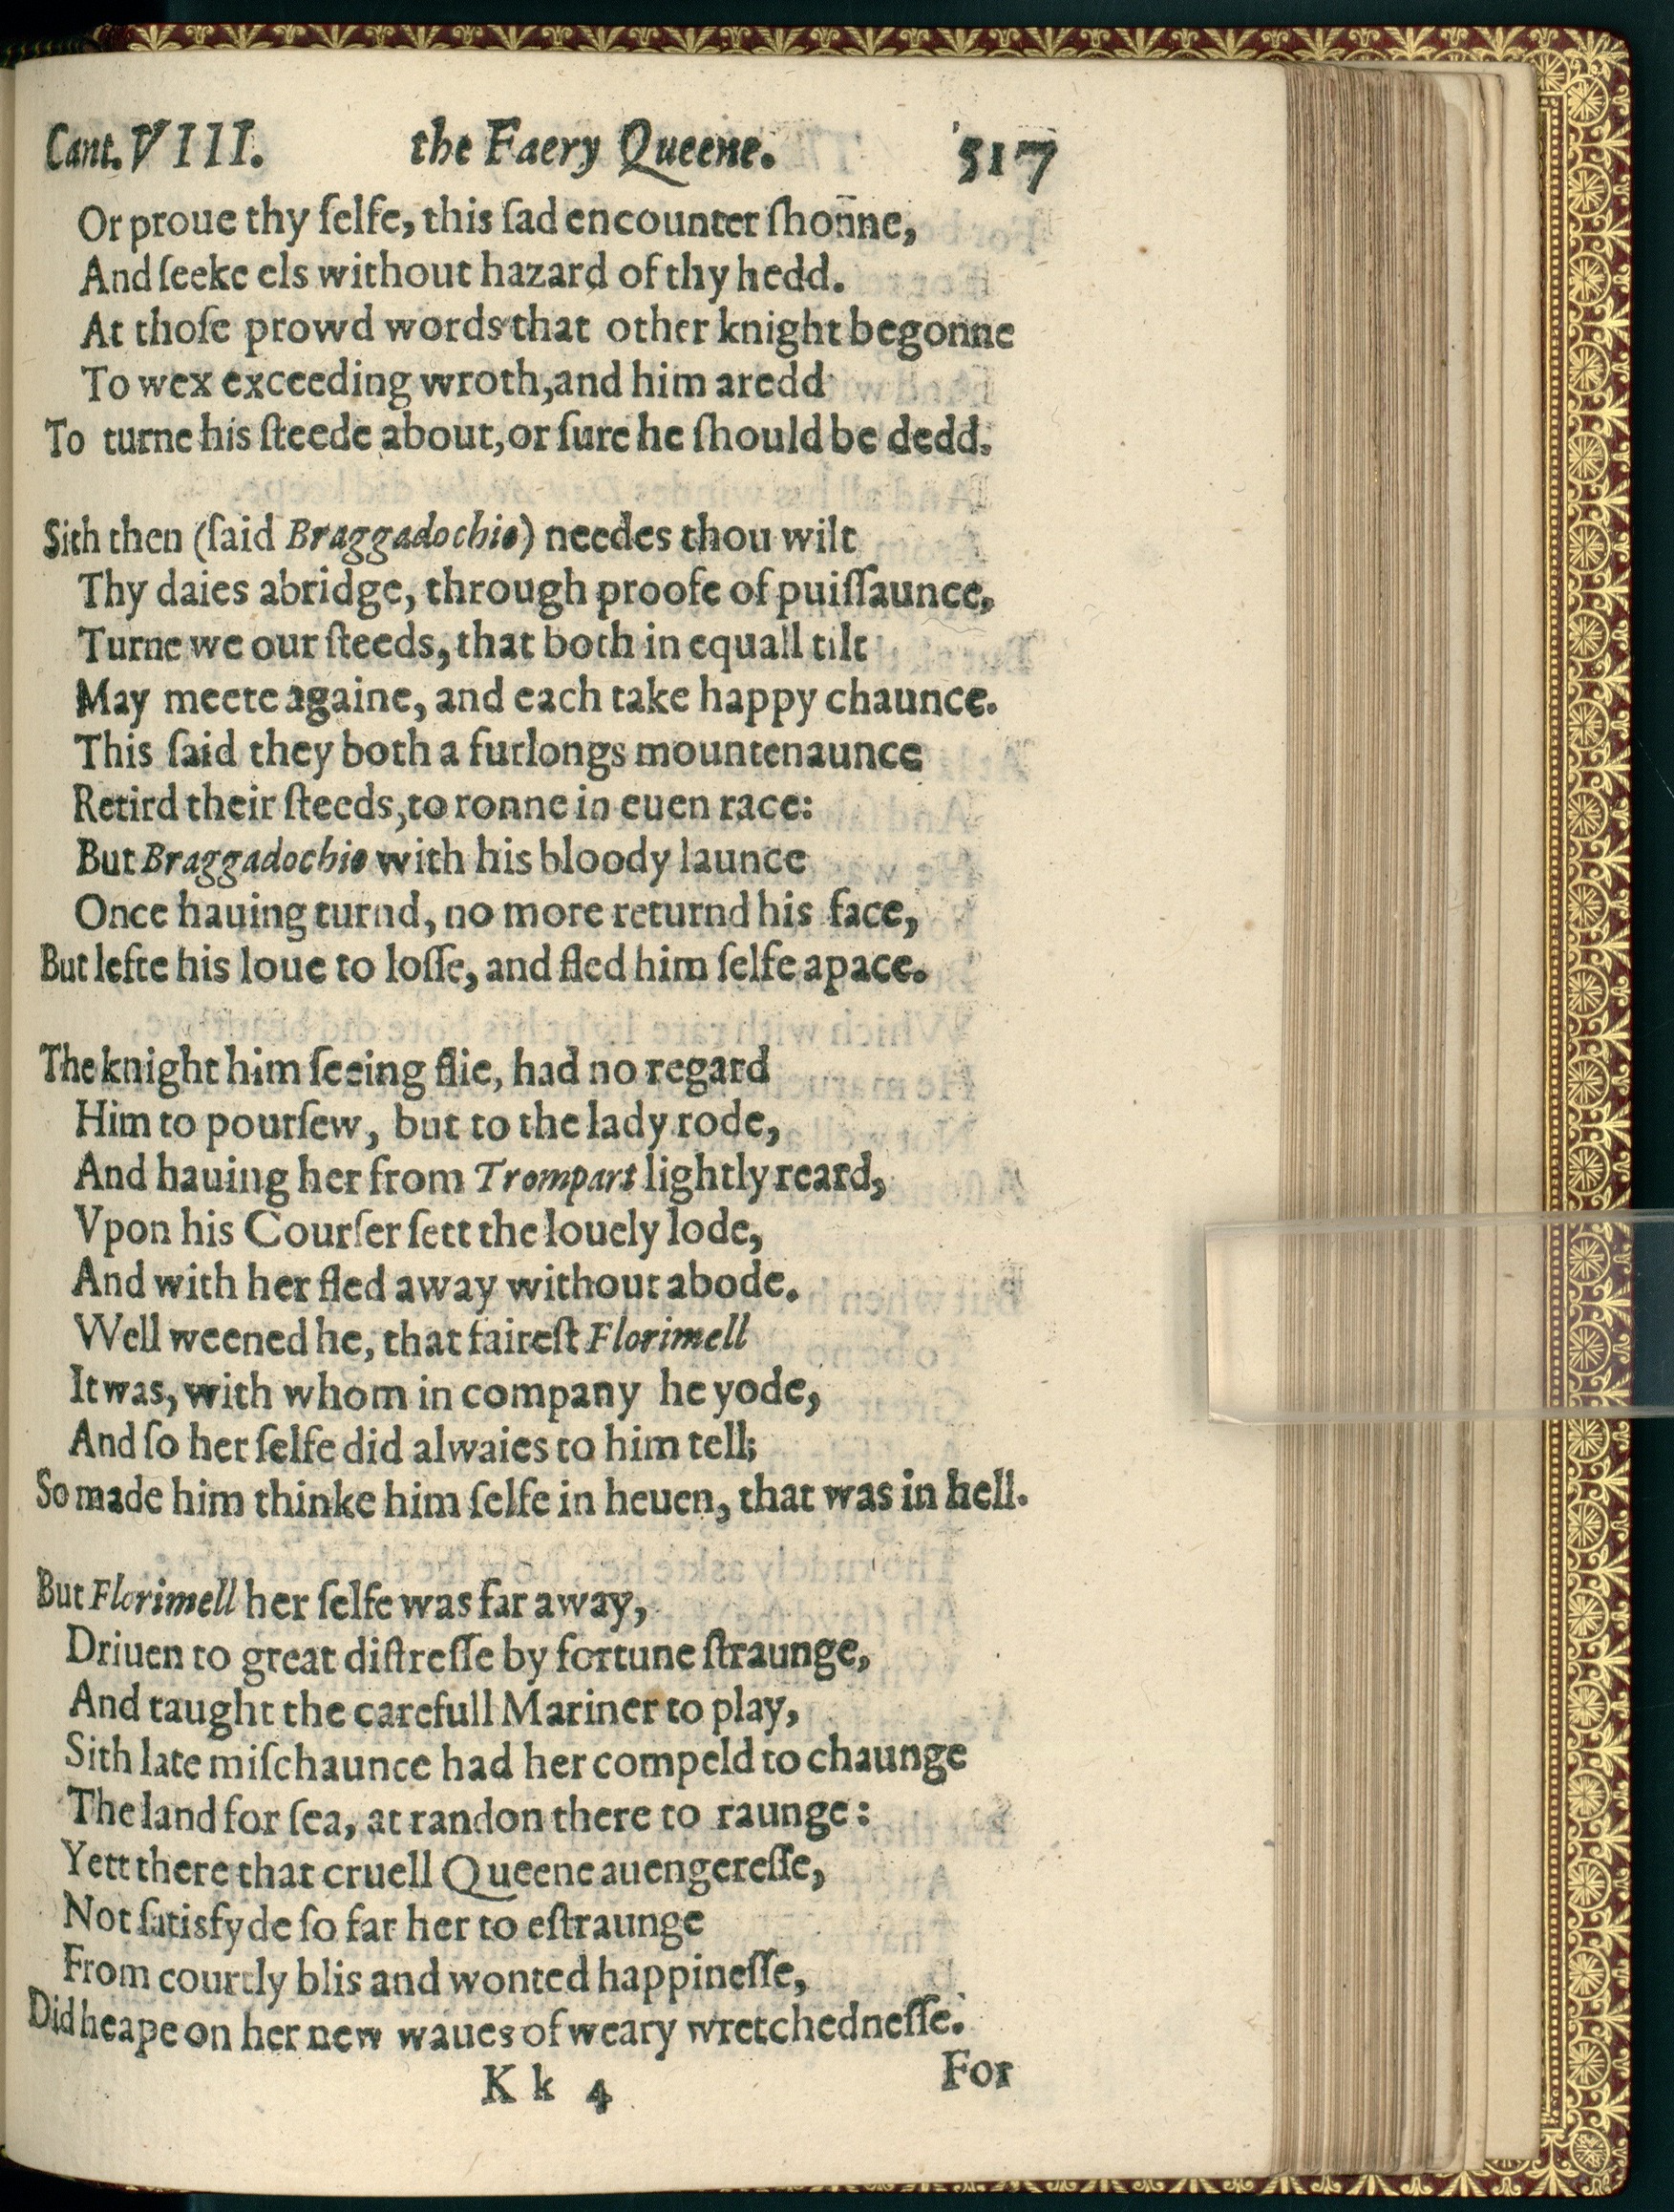 Cant. VIII. the Faery Queene. 517
Or proue thy ſelfe, this ſad encounter ſhoñne,
And ſeeke els without hazard of thy hedd.
At thoſe prowd words that other knight begonne
To wex exceeding wroth, and him aredd
To turne his ſteede about, or ſure he ſhould be dedd.
Sith then (ſaid Braggadochio) needes thou wilt
Thy daies abridge, through proofe of puiſſaunce,
Turne we our ſteeds, that both in equall tilt
May meete againe, and each take happy chaunce.
This ſaid they both a furlongs mountenaunce
Retird their ſteeds, to ronne in euen race:
But Braggadochio with his bloody launce
Once hauing turnd, no more returnd his face,
But lefte his loue to loſſe, and fled him ſelfe apace.
The knight him ſeeing flie, had no regard
Him to pourſew, but to the lady rode,
And hauing her from Trompart lightly reard,
Vpon his Courſer ſett the louely lode,
And with her fled away without abode.
Well weened he, that faireſt Florimell
It was, with whom in company he yode,
And ſo her ſelfe did alwaies to him tell;
So made him thinke him ſelfe in heuen, that was in hell.
But Florimell her ſelfe was far away,
Driuen to great diſtreſſe by fortune ſtraunge,
And taught the carefull Mariner to play,
Sith late miſchaunce had her compeld to chaunge
The land for ſea, at randon there to raunge:
Yett there that cruell Queene auengereſſe,
Not ſatisfyde ſo far her to eſtraunge
From courtly blis and wonted happineſſe,
Did heape on her new waues of weary wretchedneſſe.
K k 4 For